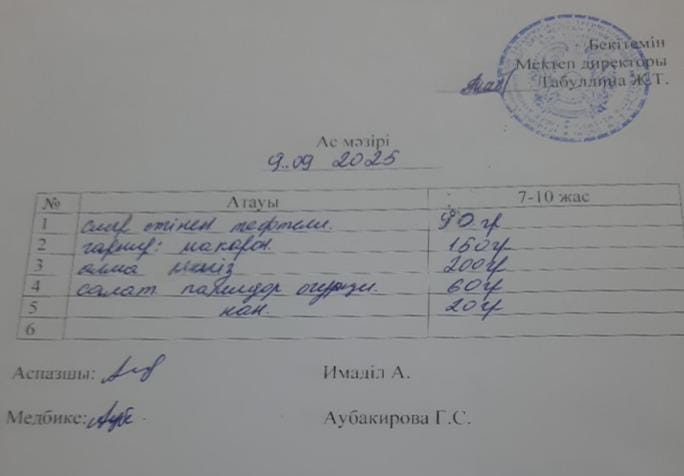 Бекітемін
Мектеп директоры
Табуллина Ж.Т.
Ас мәзірі
9.09 2025
№ Атауы 7-10 жас
1 сиыр етінен тефтели. 90 гр
2 гарнир: макарон. 150гр
3 алма 200гр
4 салат помидор огурцы. 60гр
5 нан. 20гр
6
Аспазшы: Имаділ А.
Медбике: Аубакирова Г.С.